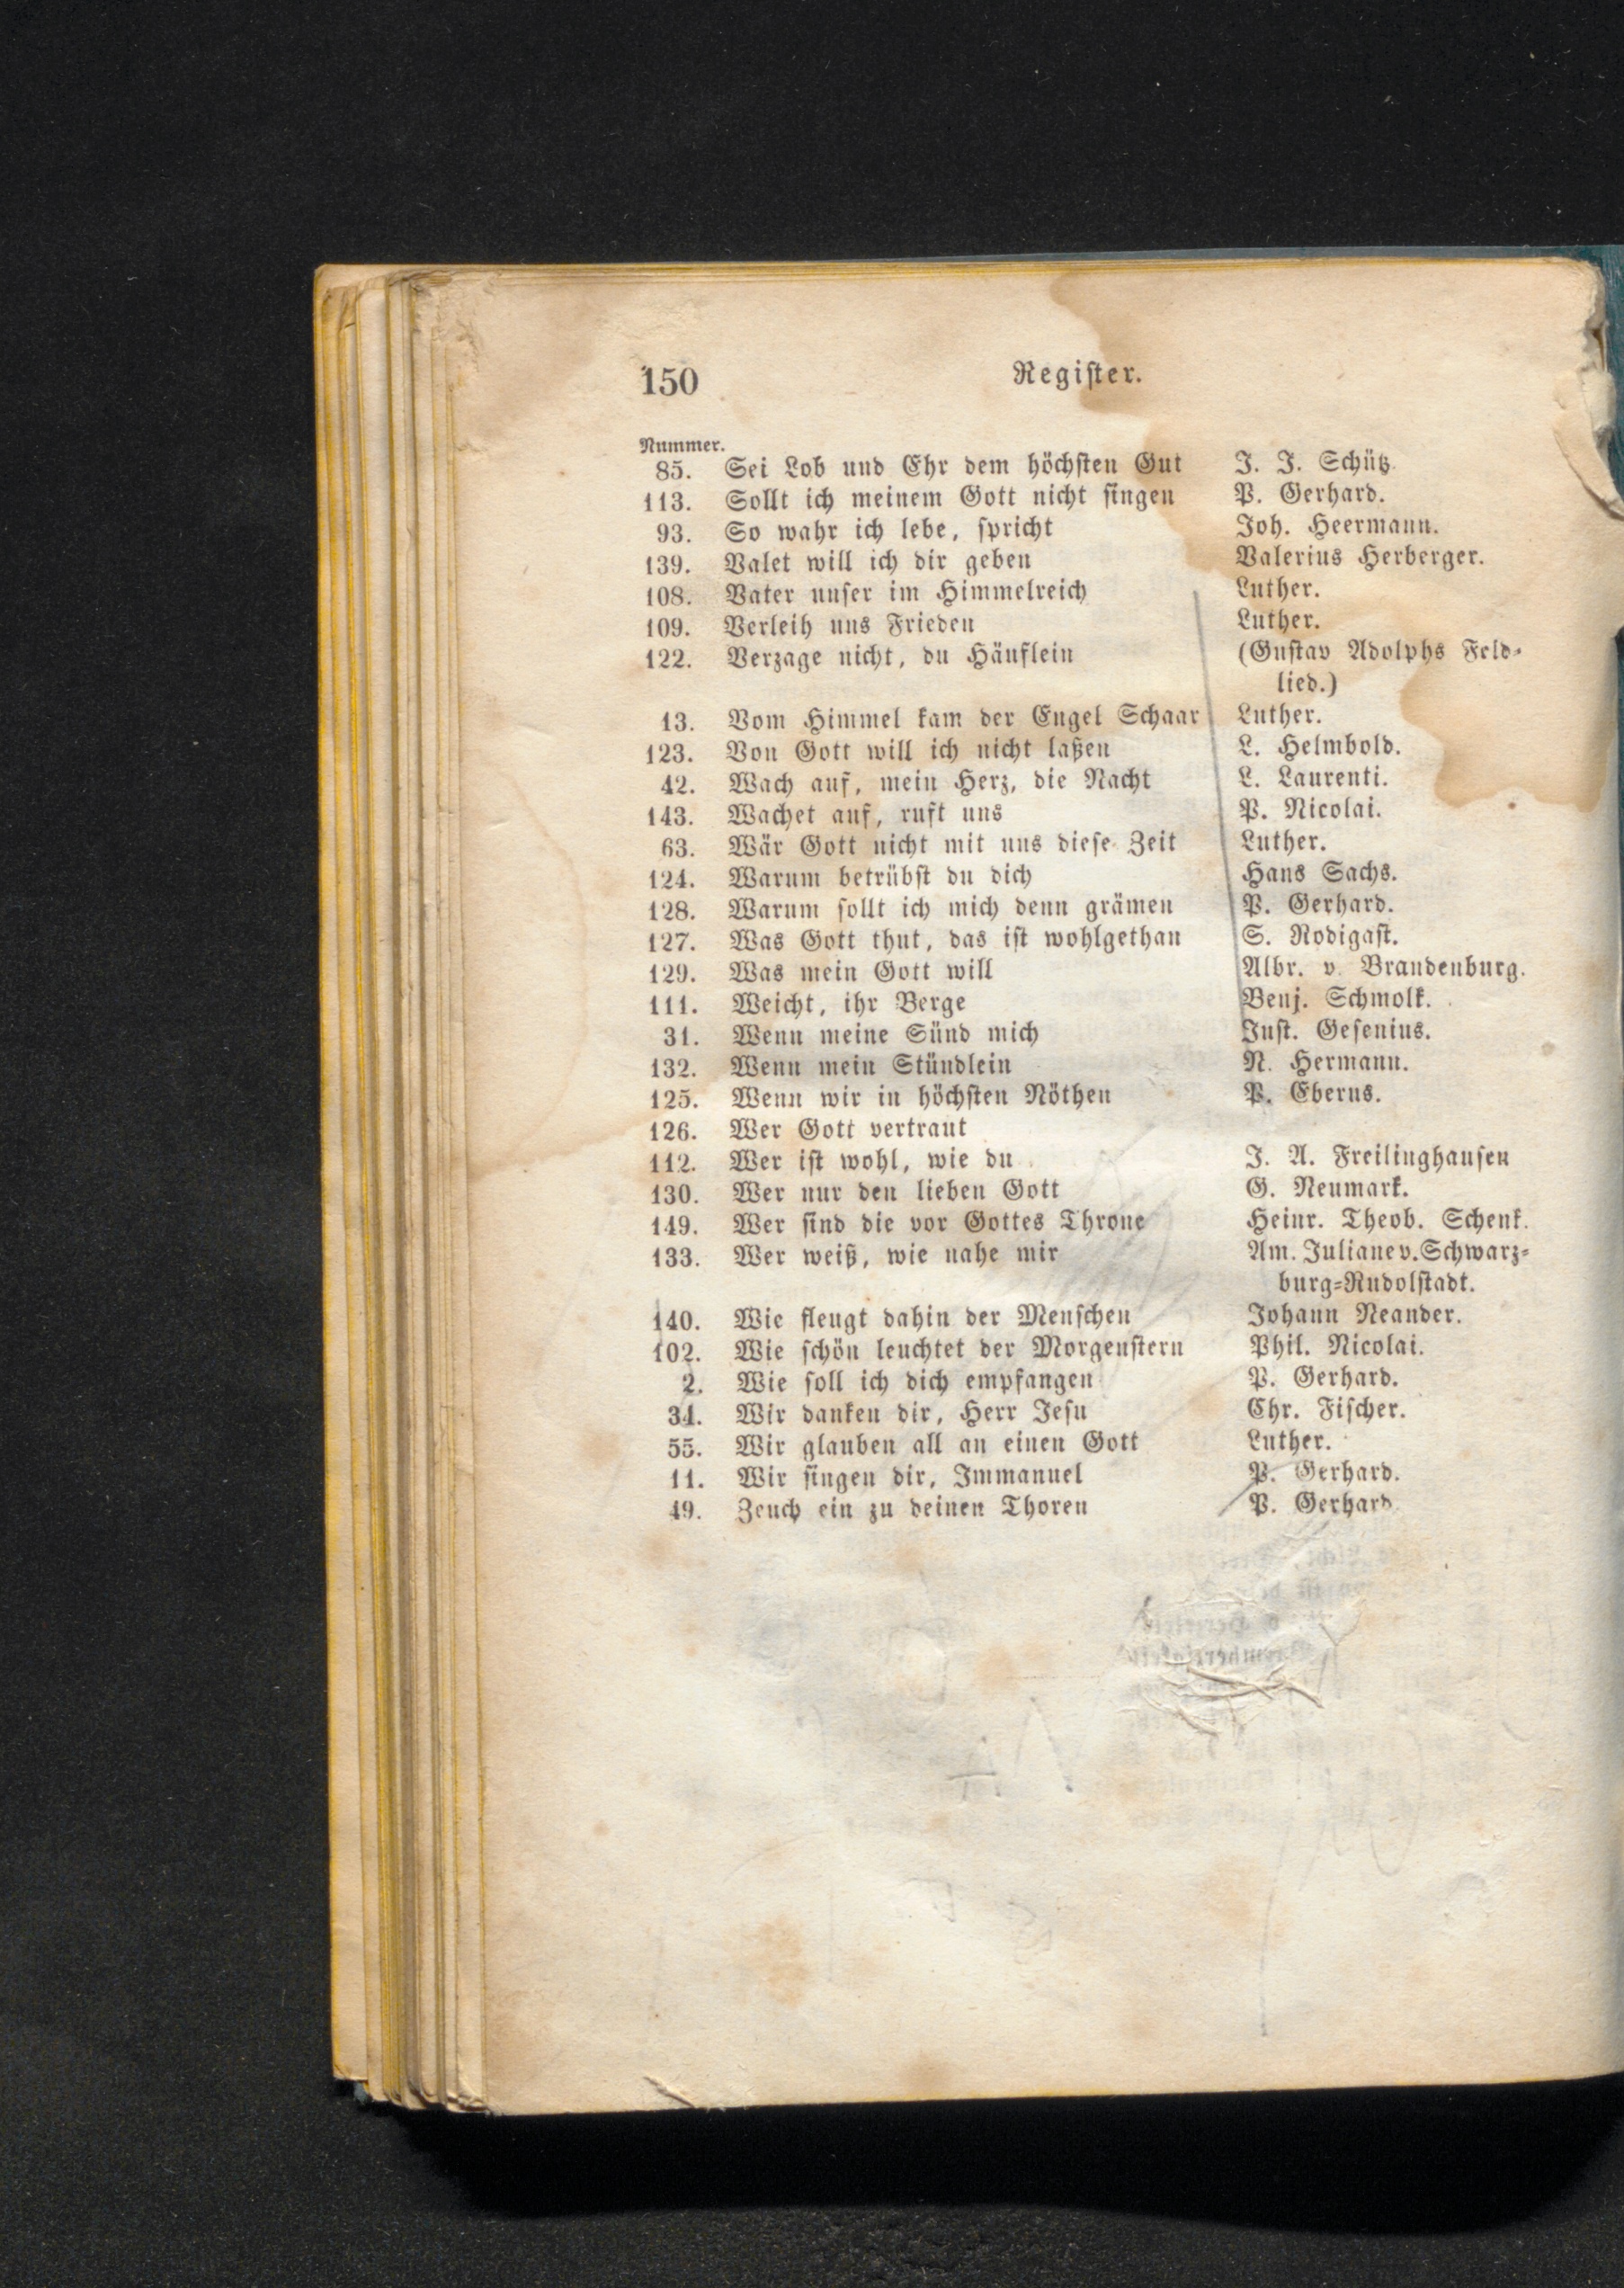 150 Register.
Nummer.
85. Sei Lob und Ehr dem höchsten Gut J. J. Schütz.
113. Sollt ich meinem Gott nicht singen P. Gerhard.
93. So wahr ich lebe, spricht Joh. Heermann.
139. Valet will ich dir geben Valerius Herberger.
108. Vater unser im Himmelreich Luther.
109. Verleih uns Frieden Luther.
122. Verzage nicht, du Häuflein (Gustav Adolphs Feld-
lied.)
13. Vom Himmel kam der Engel Schaar Luther.
123. Von Gott will ich nicht laßen L. Helmbold.
42. Wach auf, mein Herz, die Nacht L. Laurenti.
143. Wachet auf, ruft uns P. Nicolai.
63. Wär Gott nicht mit uns diese Zeit Luther.
124. Warum betrübst du dich Hans Sachs.
128. Warum sollt ich mich denn grämen P. Gerhard.
127. Was Gott thut, das ist wohlgethan S. Rodigast.
129. Was mein Gott will Albr. v. Brandenburg.
111. Weicht, ihr Berge Benj. Schmolk.
31. Wenn meine Sünd mich Just. Gesenius.
132. Wenn mein Stündlein N. Hermann.
125. Wenn wir in höchsten Nöthen P. Eberus.
126. Wer Gott vertraut
112. Wer ist wohl, wie du J. A. Freilinghausen
130. Wer nur den lieben Gott G. Neumark.
149. Wer sind die vor Gottes Throne Heinr. Theob. Schenk.
133. Wer weiß, wie nahe mir Am. Juliane v. Schwarz-
burg-Rudolstadt.
140. Wie fleugt dahin der Menschen Johann Neander.
102. Wie schön leuchtet der Morgenstern Phil. Nicolai.
2. Wie soll ich dich empfangen P. Gerhard.
34. Wir danken dir, Herr Jesu Chr. Fischer.
55. Wir glauben all an einen Gott Luther.
11. Wir singen dir, Immanuel P. Gerhard.
49. Zeuch ein zu deinen Thoren P. Gerhard.